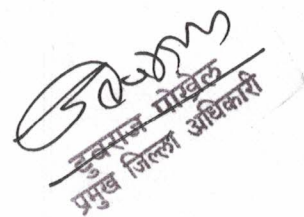 डुवराज पोखेल
प्रमुख जिल्ला अधिकारी